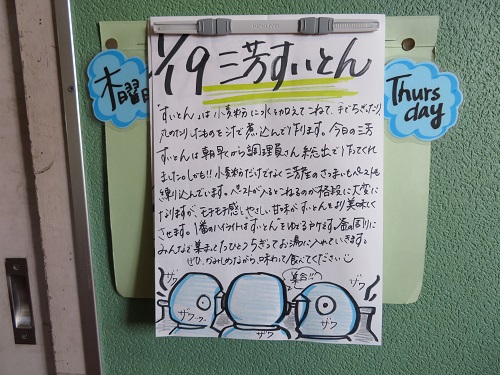 1/19 三芳すいとん
木曜日
Thurs
day
"すいとん"は小麦粉に水を加えてこねて、手でちぎったり、
丸めたりしたものを汁で煮込んで作ります。今日の三芳
すいとんは朝早くから調理員さん総出で作ってくれ
ました。しかも!!小麦粉だけでなく三芳産のさつまいもペーストも
練り込んでいます。ペーストが入るとこねるのが格段に大変に
なりますが、モチモチ感とやさしい甘味がすいとんをより美味しく
させます。1番のハイライトは"すいとん"をゆでる時です。釜の周りに
みんなで集まってひとつひとつちぎってお湯に入れていきます。
ぜひ、かみしめながら、味わって食べてください
集合!!
ザワ
ザワ
ザワッ
ザワ
ザワ